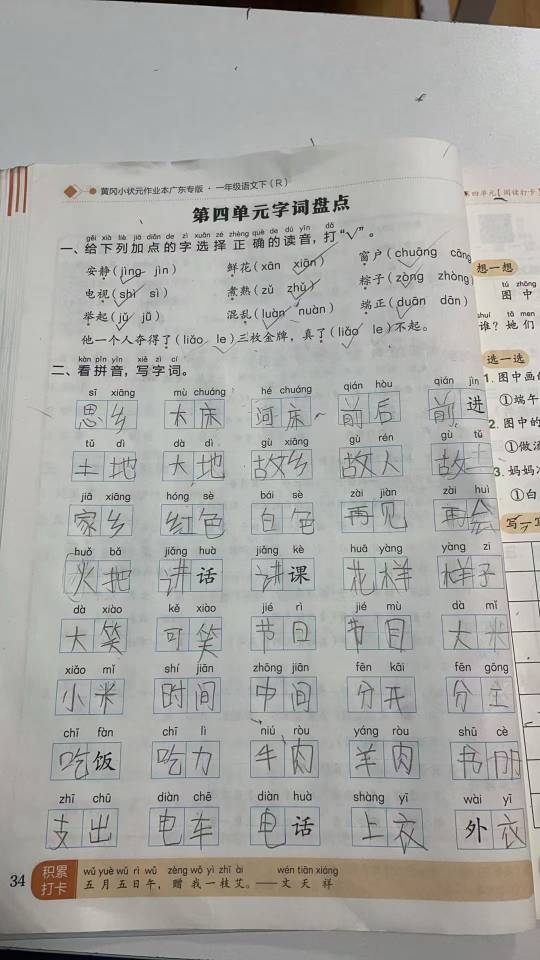 黄冈小状元作业本广东专版·一年级语文下（R）
第四单元字词盘点
gěi xià liè jiā diǎn de zì xuǎn zé zhèng què de dú yīn dǎ
一、给下列加点的字选择正确的读音，打“√”。
安静（jìng jìn） 鲜花（xān xiān） 窗户（chuāng cāng
电视（shì sì） 煮熟（zǔ zhǔ） 粽子（zòng zhòng）
举起（jǔ jǔ） 混乱（luàn nuàn） 端正（duān dān）
他一个人夺得了（liǎo le）三枚金牌，真了（liǎo le）不起。
kàn pīn yīn xiě zì cí
二、看拼音，写字词。
sī xiāng mù chuáng hé chuáng qián hòu qián jìn
思乡 木床 河床 前后 前进
tǔ dì dà dì gù xiāng gù rén gù tǔ
土地 大地 故乡 故人 故土
jiā xiāng hóng sè bái sè zài jiàn zài huì
家乡 红色 白色 再见 再会
huǒ bǎ jiǎng huà jiǎng kè huā yàng yàng zi
火把 讲话 讲课 花样 样子
dà xiào kě xiào jié rì jié mù dà mǐ
大笑 可笑 节日 节目 大米
xiǎo mǐ shí jiān zhōng jiān fēn kāi fēn gōng
小米 时间 中间 分开 分工
chī fàn chī lì niú ròu yáng ròu shū cè
吃饭 吃力 牛肉 羊肉 书册
zhī chū diàn chē diàn huà shàng yī wài yī
支出 电车 电话 上衣 外衣
34
积累
打卡
wǔ yuè wǔ rì wǔ zèng wǒ yì zhī ài wén tiān xiáng
五月五日午，赠我一枝艾。——文天祥
四单元【阅读打卡】
想一想
tú zhōng
图中
shuí tā men
谁？她们
选一选
1. 图中画
①端午
2. 图中的
①做
3. 妈妈
①白
写一写